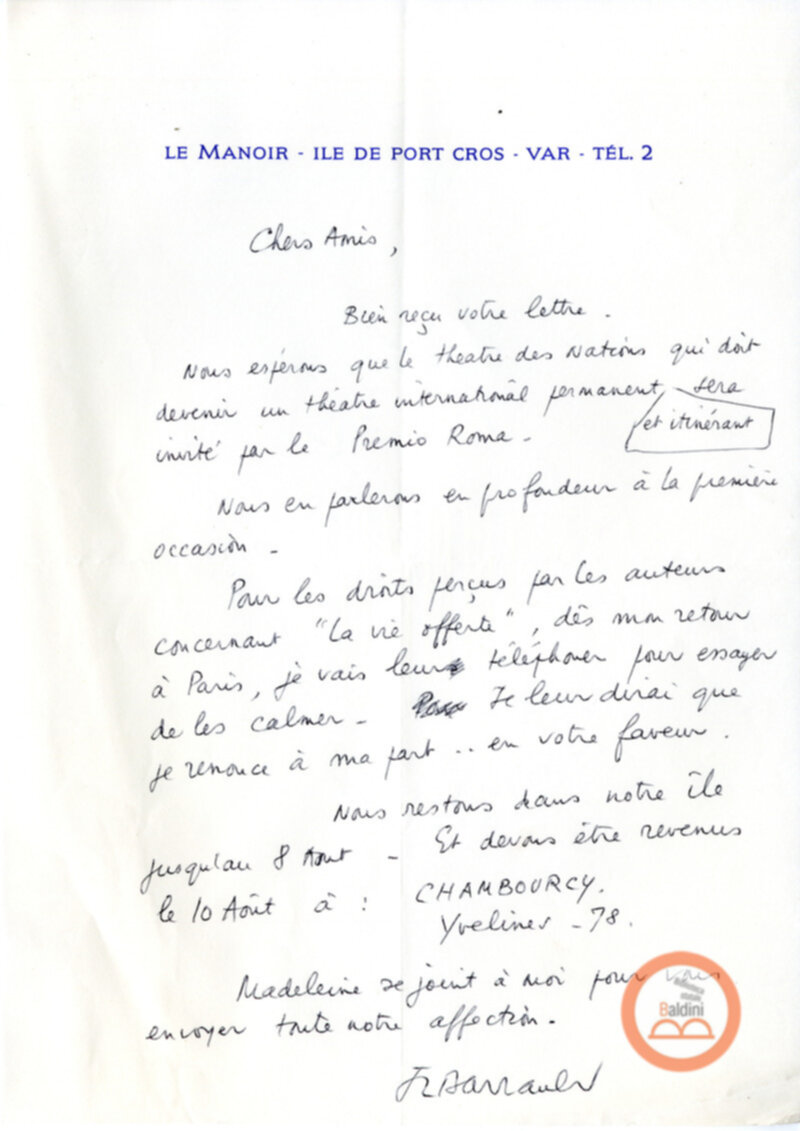 LE MANOIR - ILE DE PORT CROS - VAR - TÉL. 2
Chers Amis,
Bien reçu votre lettre.
Nous espérons que le theatre des Nations qui doit
devenir un théâtre international permanent, sera
et itinérant
invité par le Premio Roma -
Nous en parlerons en profondeur à la première
occasion -
Pour les droits perçus par les auteurs
concernant "la vie offerte", dès mon retour
à Paris, je vais leur téléphoner pour essayer
de les calmer - Je leur dirai que
je renonce à ma part .. en votre faveur.
Nous restons dans notre île
jusqu'au 8 Aout - Et devons être revenus
le 10 Août à : CHAMBOURCY.
Yvelines - 78.
Madeleine se joint à moi pour vous
envoyer toute notre affection -
JLBarrault
Biblioteca
statale
Baldini